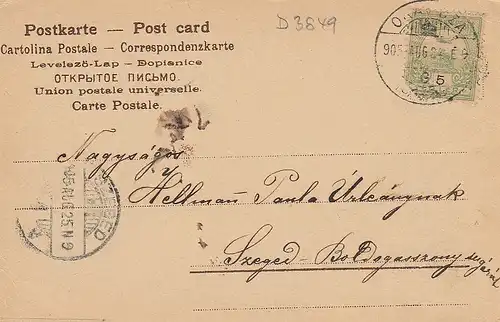 D 3849
Postkarte — Post card
Cartolina Postale — Correspondenzkarte
Levelező-Lap — Dopisnice
ОТКРЫТОЕ ПИСЬМО.
Union postale universelle.
Carte Postale.
905 AUG 24 E 9
5
Nagyságos
Hellmann Paula Úrleánynak
Szeged - Boldogasszony sugárút
SZEGED
905 AUG 25 N 9